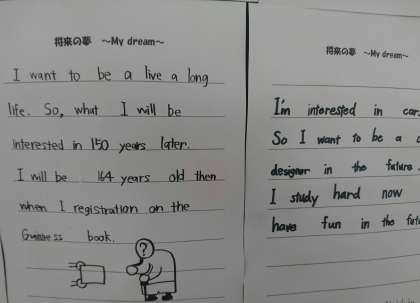 将来の夢 ～My dream～
I want to be a live a long
life. So, what I will be
interested in 150 years later.
I will be 164 years old then
when I registration on the
book.
?
将来の夢 ～My dream～
I'm interested in car
So I want to be a c
designer in the future.
I study hard now
have fun in the futu